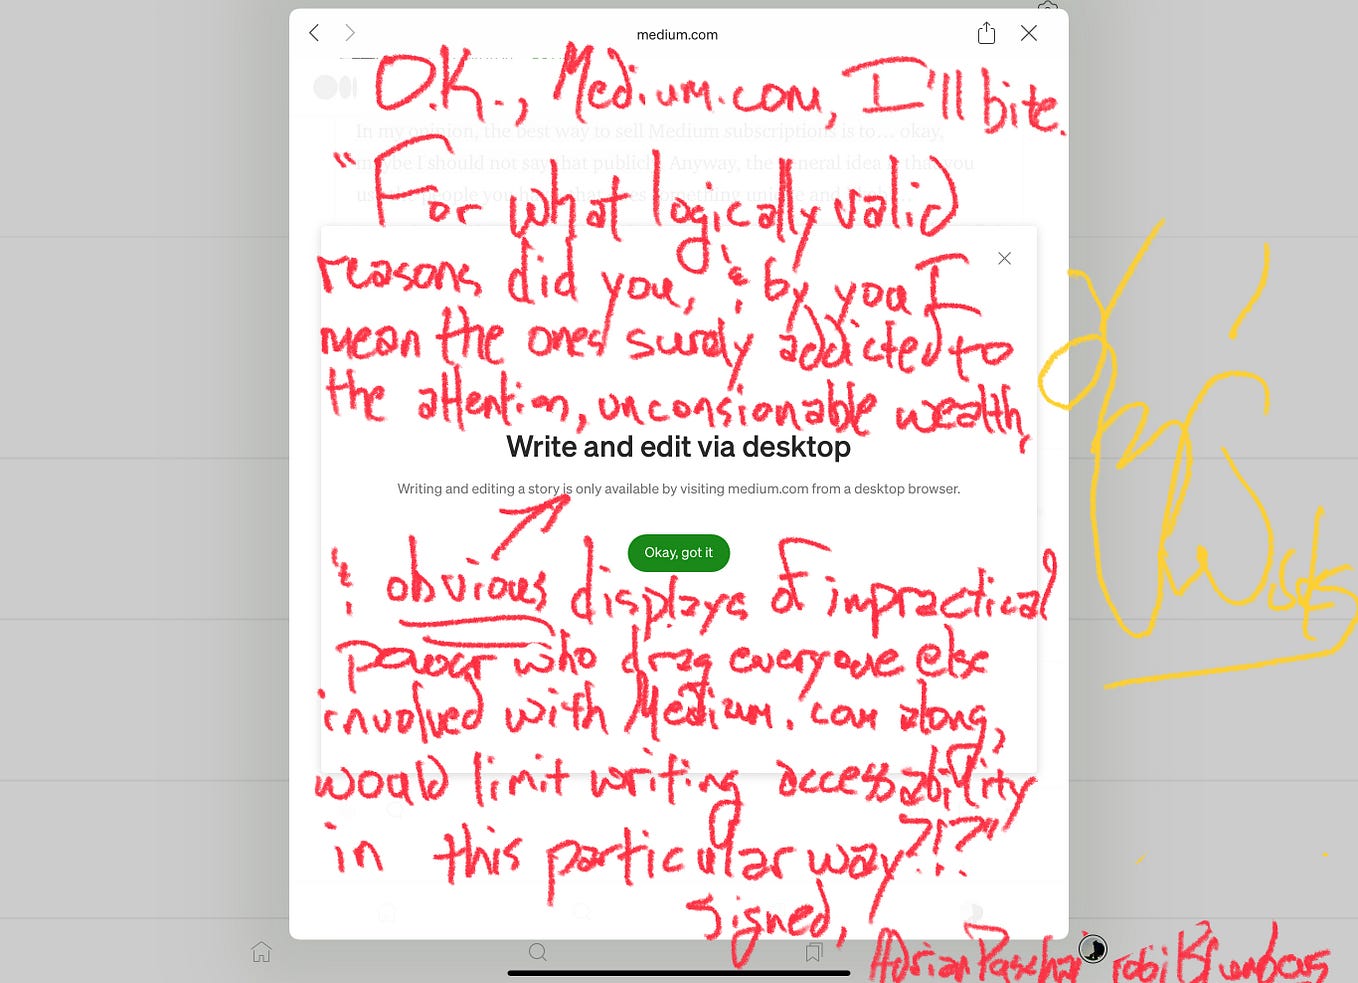 medium.com
O.K., Medium.com, I'll bite.
In my opinion, the best way to sell Medium subscriptions is to... okay,
maybe I should not say that publicly. Anyway, the general idea is that you
"For what logically valid
reasons did you, & by you I
mean the ones surely addicted to
the attention, unconsionable wealth,
Write and edit via desktop
Writing and editing a story is only available by visiting medium.com from a desktop browser.
Okay, got it
& obvious displays of impractical
power who drag everyone else
involved with Medium.com along,
would limit writing accessability
in this particular way?!?"
signed,
Adrian